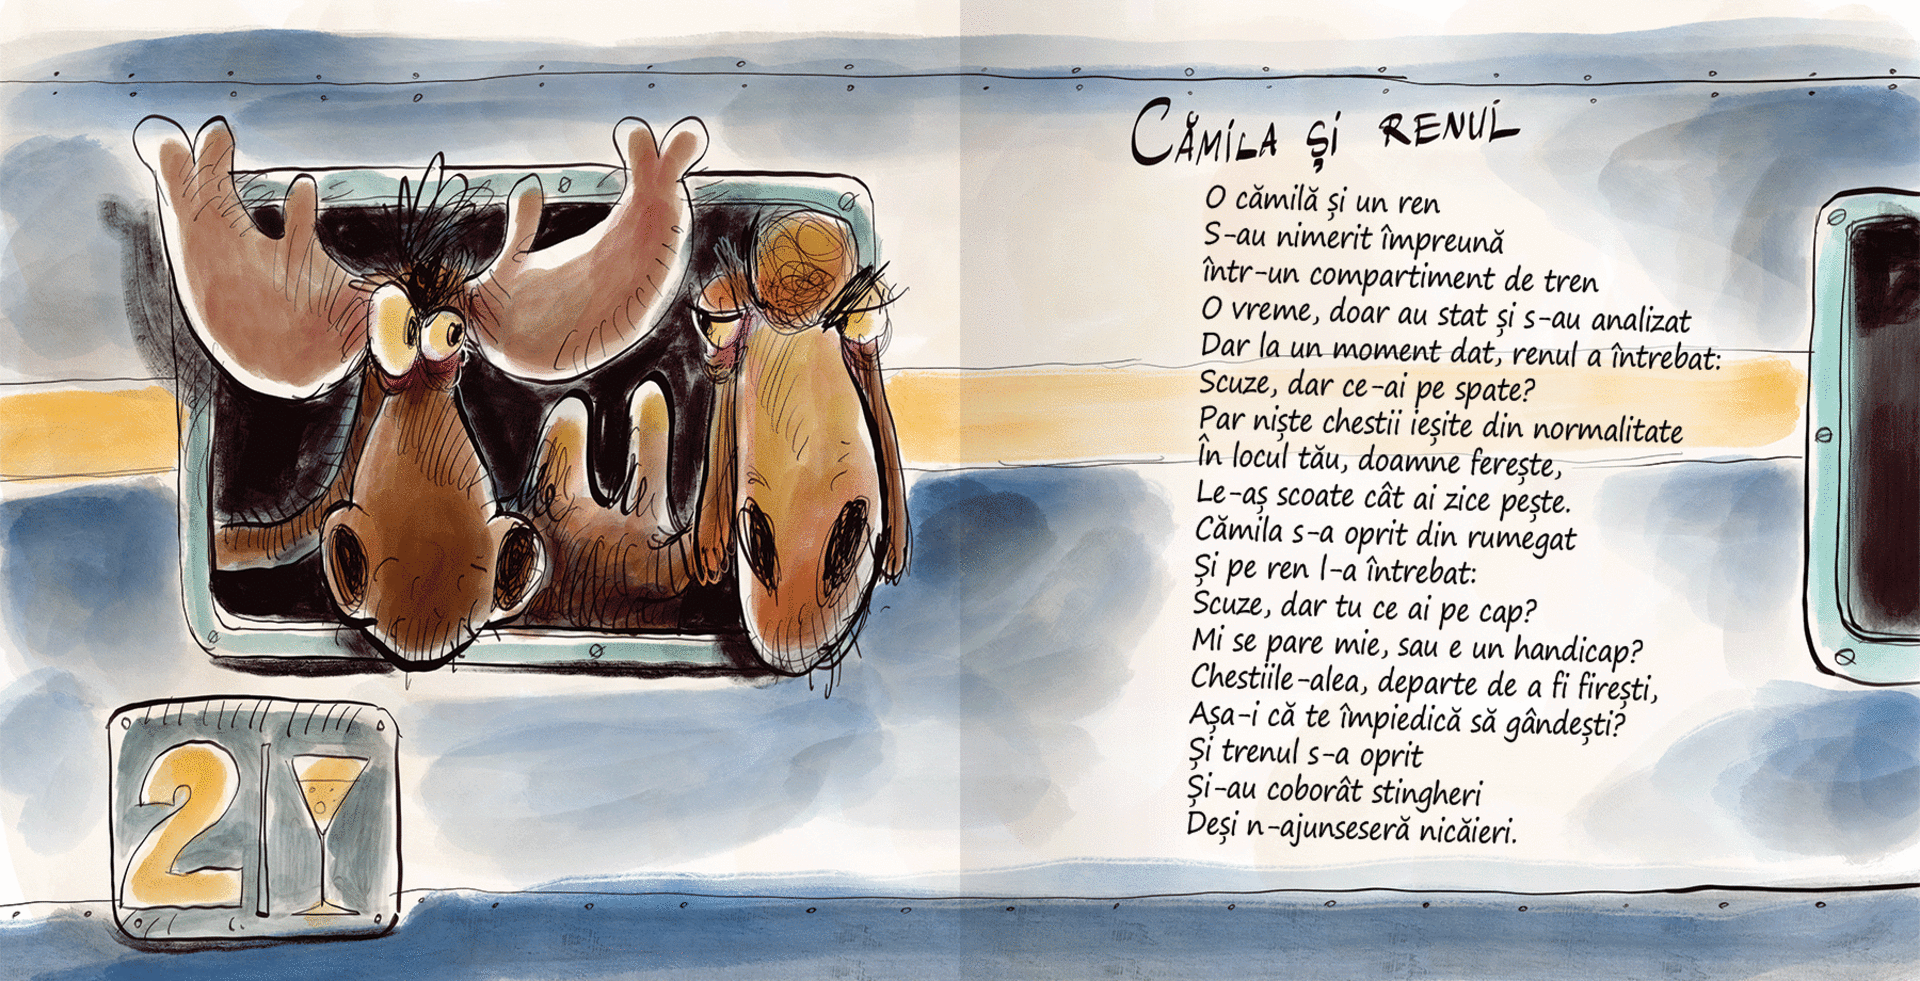 2
CĂMILA ȘI RENUL
O cămilă și un ren
S-au nimerit împreună
într-un compartiment de tren
O vreme, doar au stat și s-au analizat
Dar la un moment dat, renul a întrebat:
Scuze, dar ce-ai pe spate?
Par niște chestii ieșite din normalitate
În locul tău, doamne ferește,
Le-aș scoate cât ai zice pește.
Cămila s-a oprit din rumegat
Și pe ren l-a întrebat:
Scuze, dar tu ce ai pe cap?
Mi se pare mie, sau e un handicap?
Chestiile-alea, departe de a fi firești,
Așa-i că te împiedică să gândești?
Și trenul s-a oprit
Și-au coborât stingheri
Deși n-ajunseseră nicăieri.